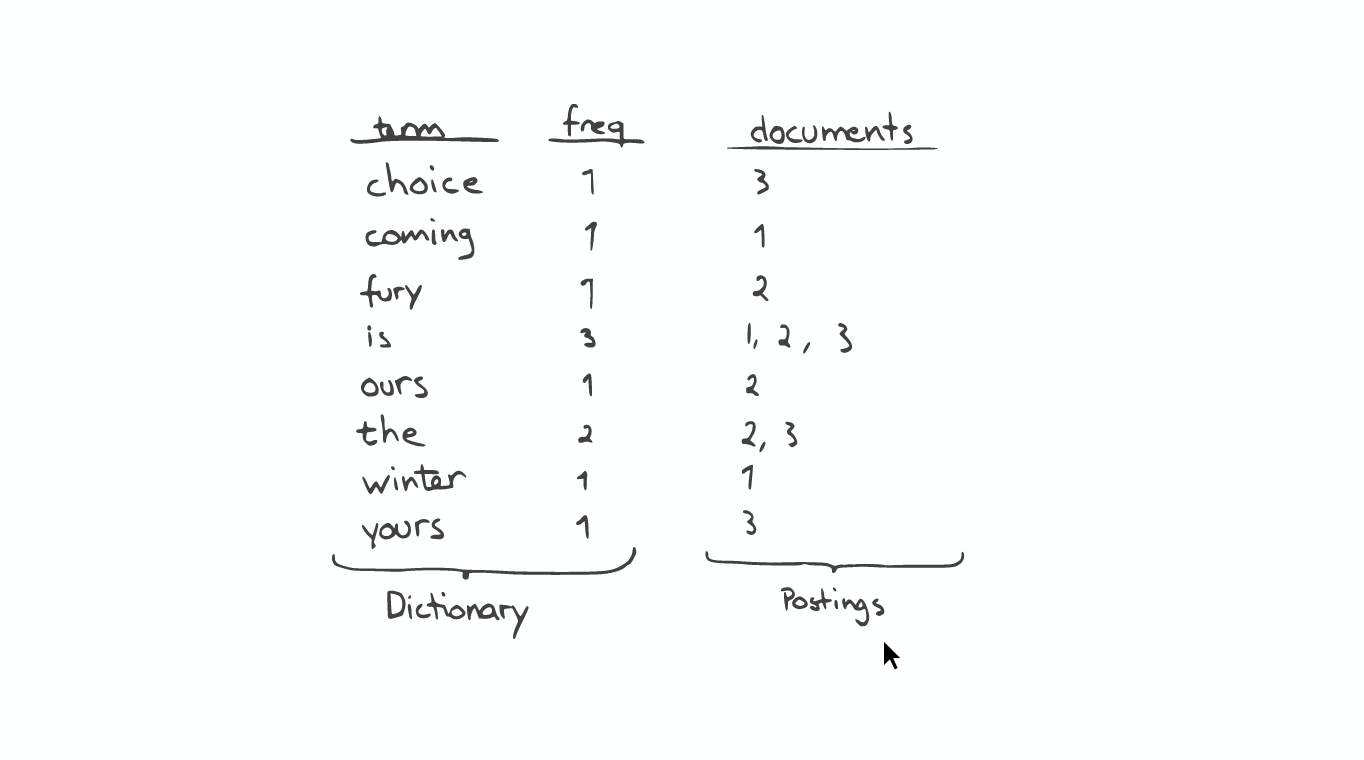 term freq documents
choice 1 3
coming 1 1
fury 1 2
is 3 1, 2, 3
ours 1 2
the 2 2, 3
winter 1 1
yours 1 3
Dictionary Postings